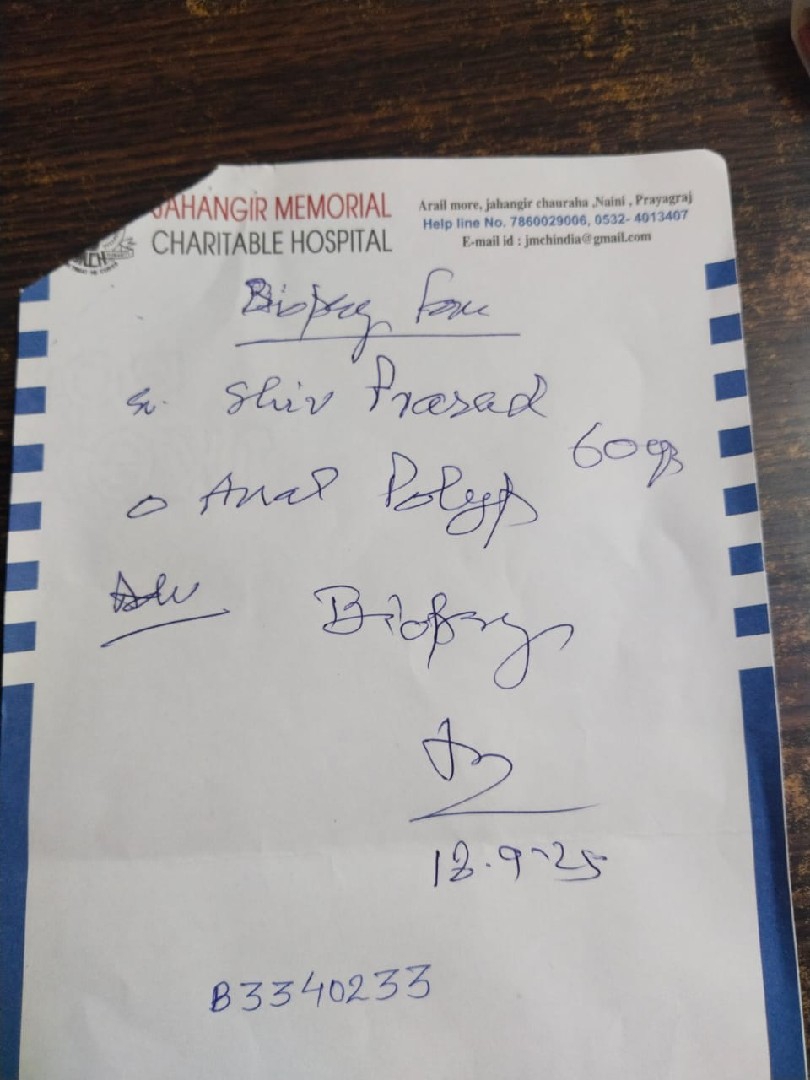 JAHANGIR MEMORIAL
CHARITABLE HOSPITAL
Arail more, jahangir chauraha ,Naini , Prayagraj
Help line No. 7860029006, 0532- 4013407
E-mail id : jmchindia@gmail.com
Biopsy Form
Shiv Prasad
60 yrs
Anal Polyp
Adv
Biopsy
18.9-25
B3340233